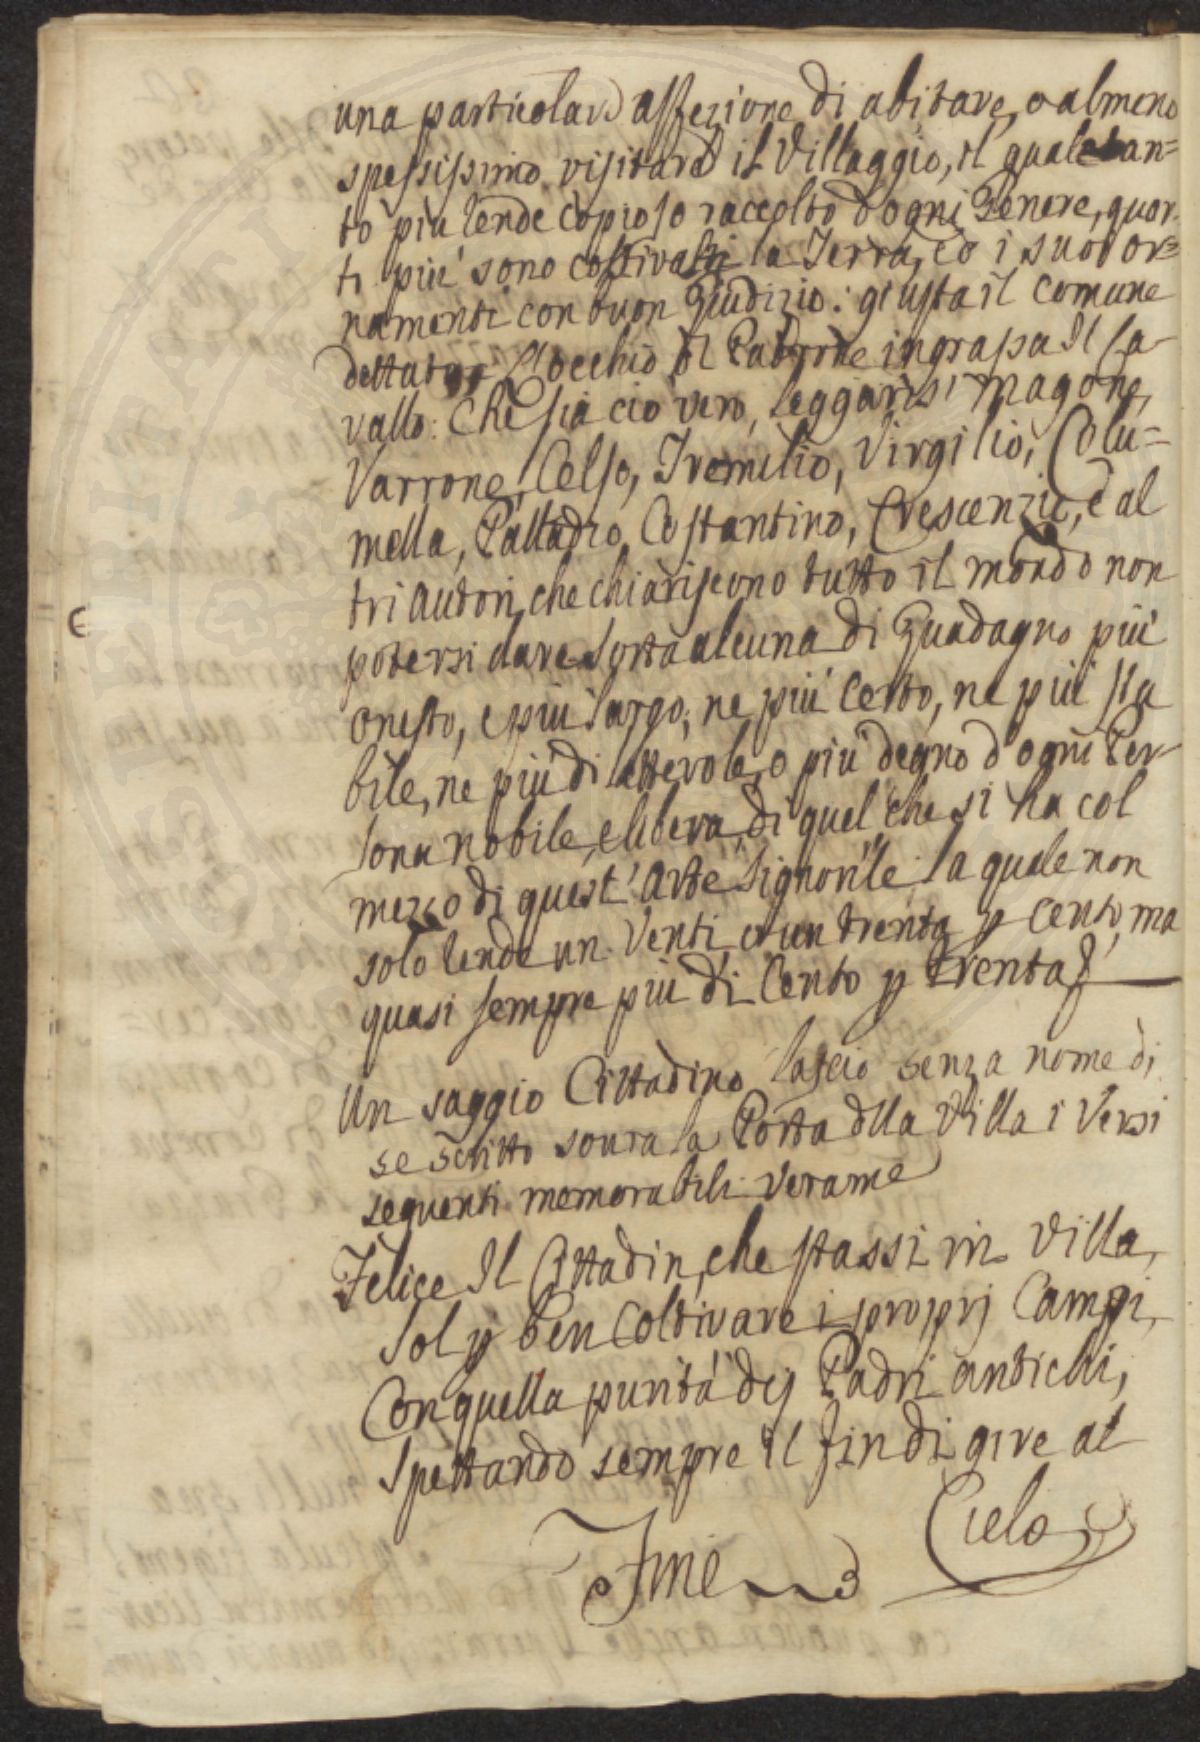 una particolare affezione di abitare, o almeno
spessissimo visitare il Villaggio, il quale tan=
to più rende copioso raccolto d'ogni Genere, quan
ti più sono coltivati la Terra, ed i suoi or=
namenti con buon Giudizio: giusta il comune
L'occhio del Padrone ingrassa Il Ca-
vallo: Che sia ciò vero, Leggansi Magone,
Varrone, Celso, Tremilio, Virgilio, Colu=
mella, Palladio, Costantino, Crescenzio, ed al
tri Autori, che chiariscono tutto il mondo non
potersi dare Sorta alcuna di Guadagno più
onesto, e più largo, ne più certo, ne più sta
bile, ne più dilettevole, o più degno d'ogni Per-
sona nobile, e libera, di quel che si ha col
mezzo di quest' Arte Signorile: la quale non
solo rende un Venti, o un trenta p Cento, ma
quasi sempre più di Cento p trenta
Un saggio Cittadino lasciò senza nome di
se scritto soura la Porta dlla Villa i Versi
seguenti memorabili verame
Felice Il Cittadin, che stassi in Villa,
Sol p ben Coltivare i proprj Campi,
Con quella purità dej Padri antichi,
Spettando sempre il fin di gire al
Cielo
Fine